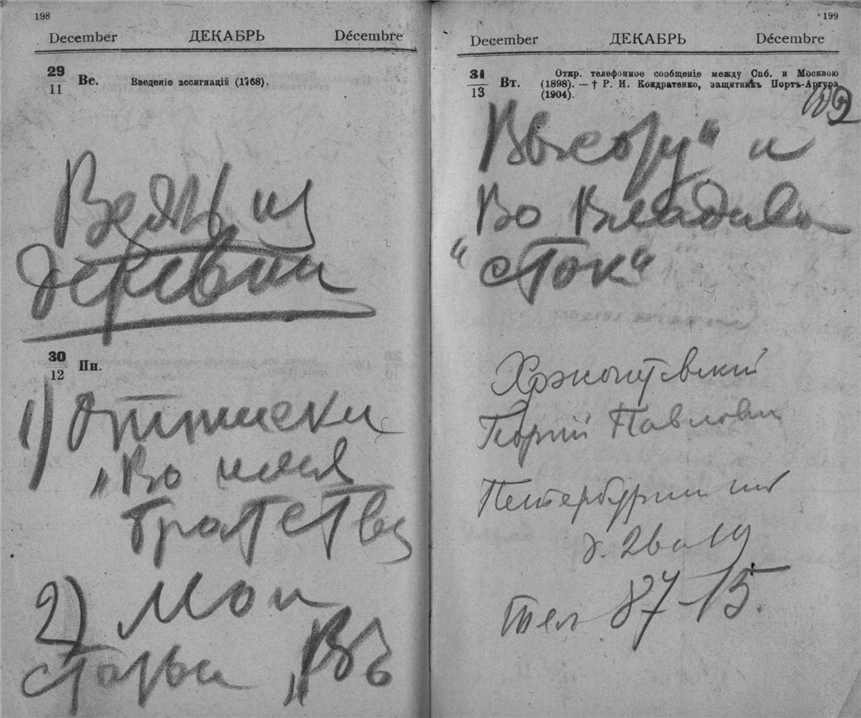 198
December ДЕКАБРЬ Décembre
29
11
Вс.
Введеніе ассигнацій (1768).
Взять из
деревни
30
12
Пн.
1) Оттиски
„Во имя
братства
2) Мои
статьи „Въ
199
December ДЕКАБРЬ Décembre
31
13
Вт.
Откр. телефонное сообщеніе между Спб. и Москвою
(1898). — † Р. И. Кондратенко, защитникъ Портъ-Артура
(1904).
и
во Владиво
сток“
Георгій Павлови
д. 2
тел. 87-15.